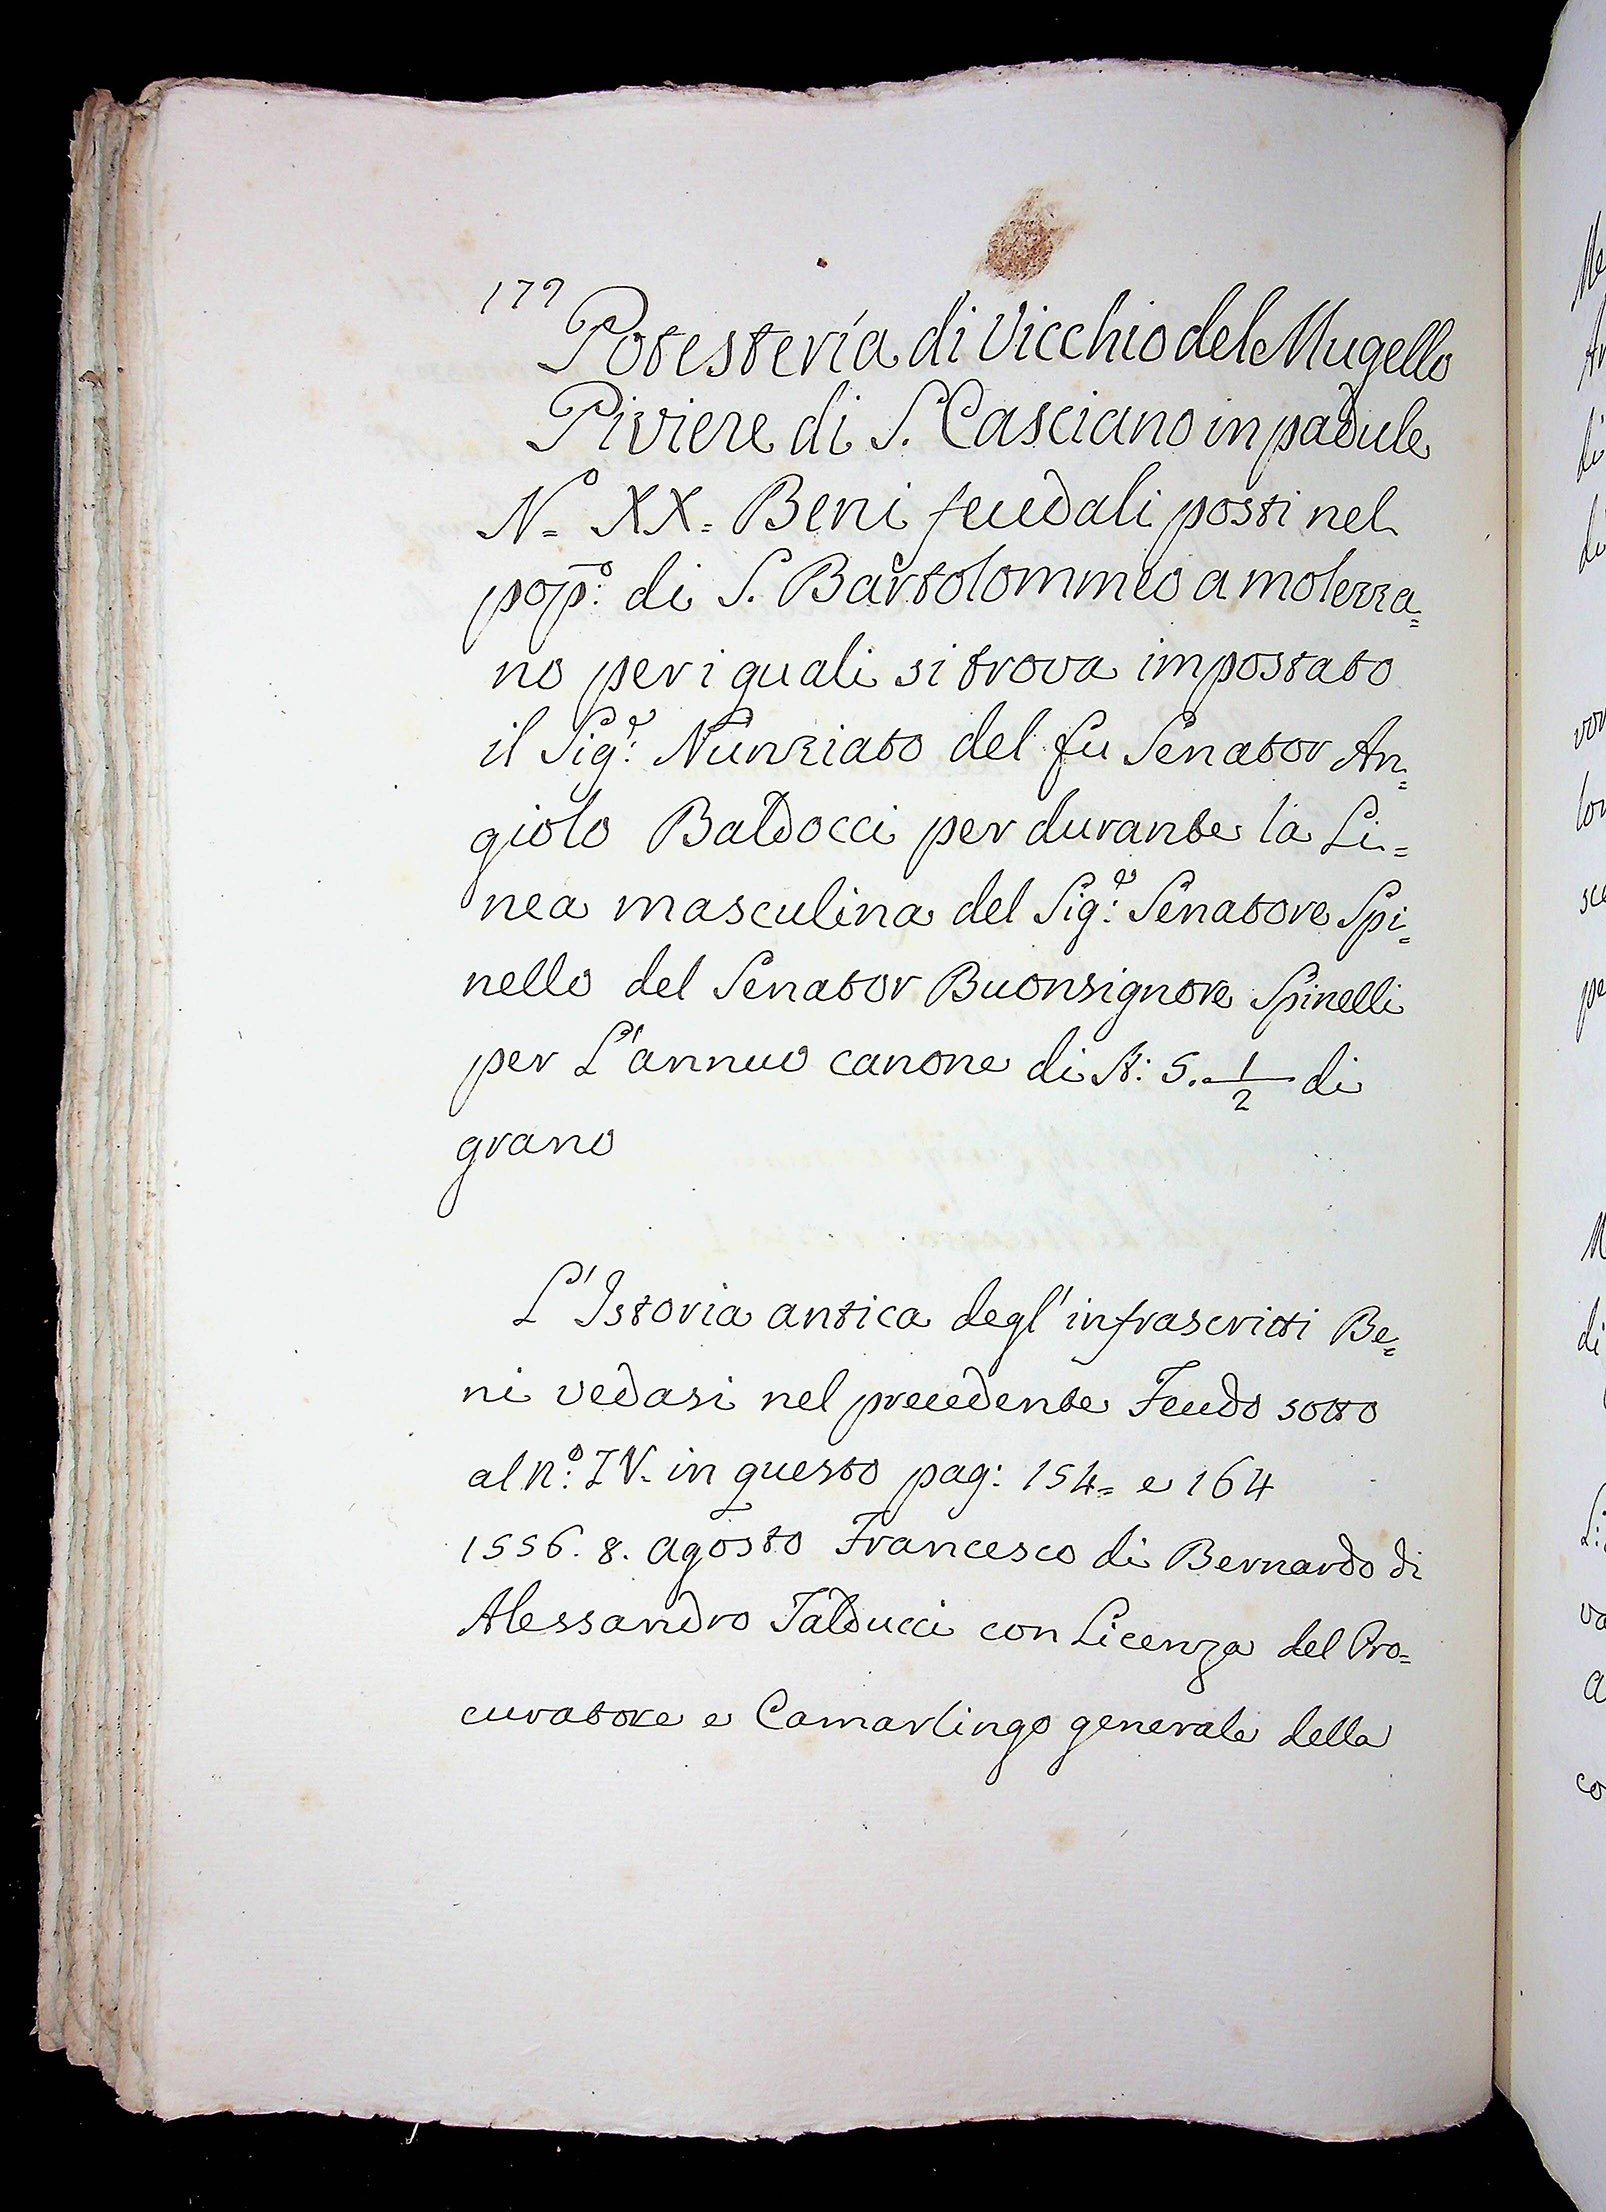 172
Potesteria di Vicchio del Mugello
Piviere di S. Casciano in padule
N.o XX. Beni feudali posti nel
pop.o di S. Bartolommeo a molezza=
no per i quali si trova impostato
il Sig.r Nunziato del fu Senator An=
giolo Baldocci per durante la Li=
nea masculina del Sig.r Senatore Spi=
nello del Senator Buonsignore Spinelli
per L'annuo canone di St: 5. 1/2 di
grano
L'Istoria antica degl'infrascritti Be=
ni vedasi nel precedente Feudo sotto
al n.o IV. in questo pag: 154= e 164
1556. 8. agosto Francesco di Bernardo di
Alessandro Talducci con Licenza del Pro=
curatore e Camarlingo generale della